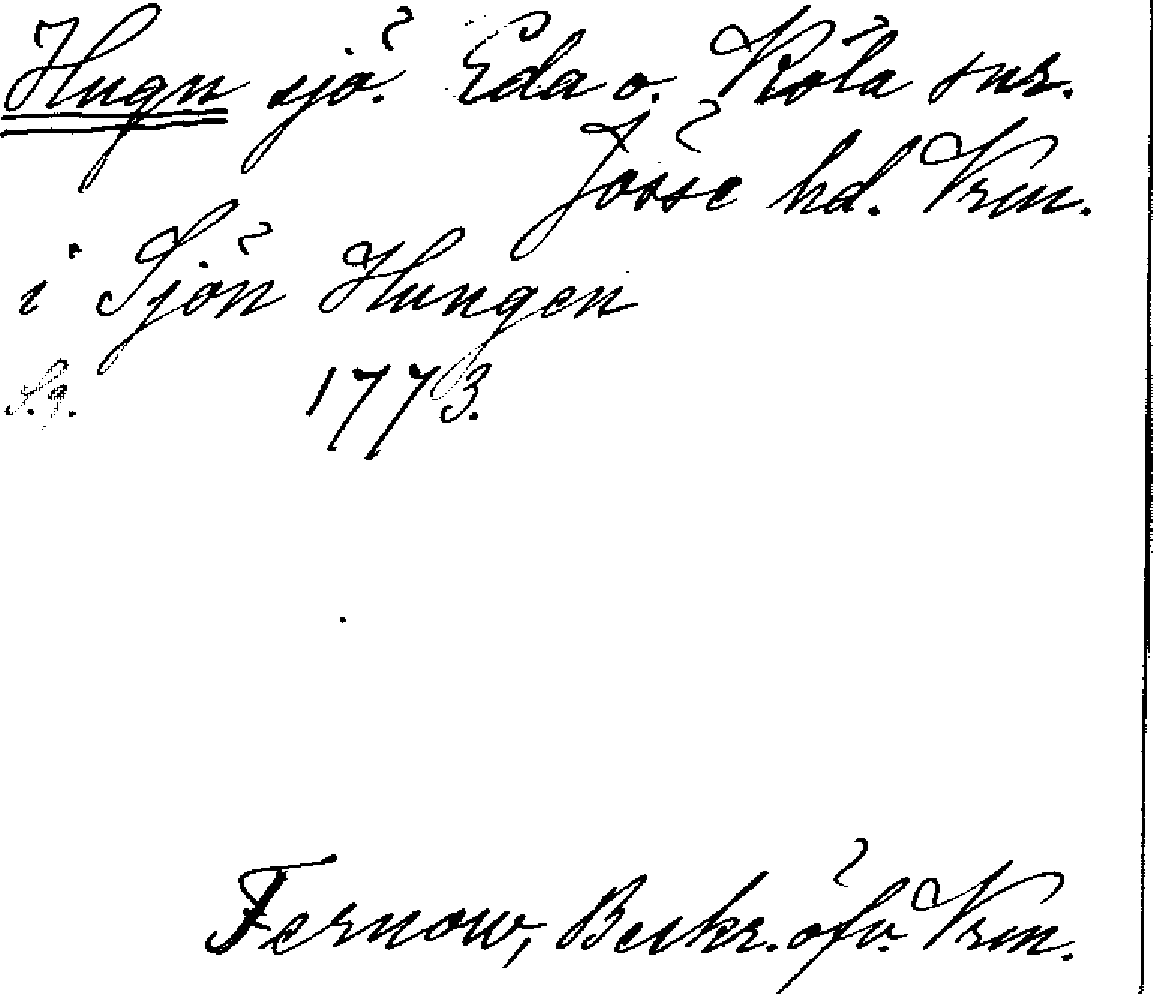 Hugn sjö. Eda o. Köla snr.
Jösse hd. Vrm.
i Sjön Hungen
S. 9. 1773.
Fernow, Beskr. öfv. Vrm.